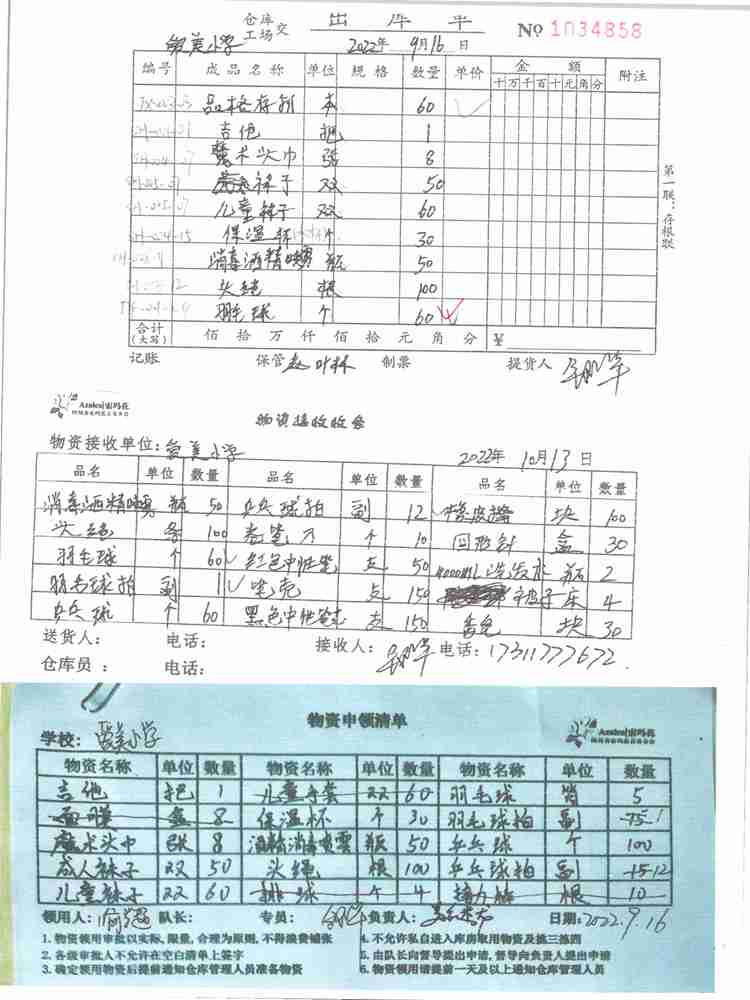 仓库 出库单
工场 交 № 1034858
爱美小学 2022年9月16日
编号 成品名称 单位 规格 数量 单价 金额 附注
十万千百十元角分
品格存折 本 60
吉他 把 1
魔术头巾 张 8
袜子 双 50
儿童袜子 双 60
保温杯 个 30
消毒酒精喷雾 瓶 50
头绳 根 100
羽毛球 个 60
第一联:存根联
合计(大写) 佰拾万仟佰拾元角分 ¥
记账 保管 制票 提货人
Azalea|索玛花
物资接收收条
物资接收单位:爱美小学 2022年10月13日
品名 单位 数量 品名 单位 数量 品名 单位 数量
消毒酒精喷雾 瓶 50 乒乓球拍 副 12 橡皮擦 块 100
头绳 条 100 卷笔刀 个 10 回形针 盒 30
羽毛球 个 60 红色中性笔 支 50 4000ML洗发水 瓶 2
羽毛球拍 副 1 笔壳 支 150 被子 床 4
乒乓球 个 60 黑色中性笔 支 150 香皂 块 30
送货人: 电话: 接收人: 电话:17311777672.
仓库员: 电话:
物资申领清单
Azalea|索玛花
学校:爱美小学
物资名称 单位 数量 物资名称 单位 数量 物资名称 单位 数量
吉他 把 1 儿童手套 双 60 羽毛球 5
面膜 盒 8 保温杯 个 30 羽毛球拍 副 15 1
魔术头巾 张 8 酒精消毒喷雾 瓶 50 乒乓球 个 100
成人袜子 双 50 头绳 根 100 乒乓球拍 副 15 12
儿童袜子 双 60 排球 个 4 接力棒 根 10
领用人: 队长: 专员: 负责人: 日期:2022.9.16
1.物资领用审批以实际,限量,合理为原则,不得浪费铺张 4.不允许私自进入库房取用物资及挑三拣四
2.各级审批人不允许在空白清单上签字 5.由队长向督导提出申请,督导向负责人提出申请
3.确定领用物资后提前通知仓库管理人员准备物资 6.物资领用请提前一天及以上通知仓库管理人员